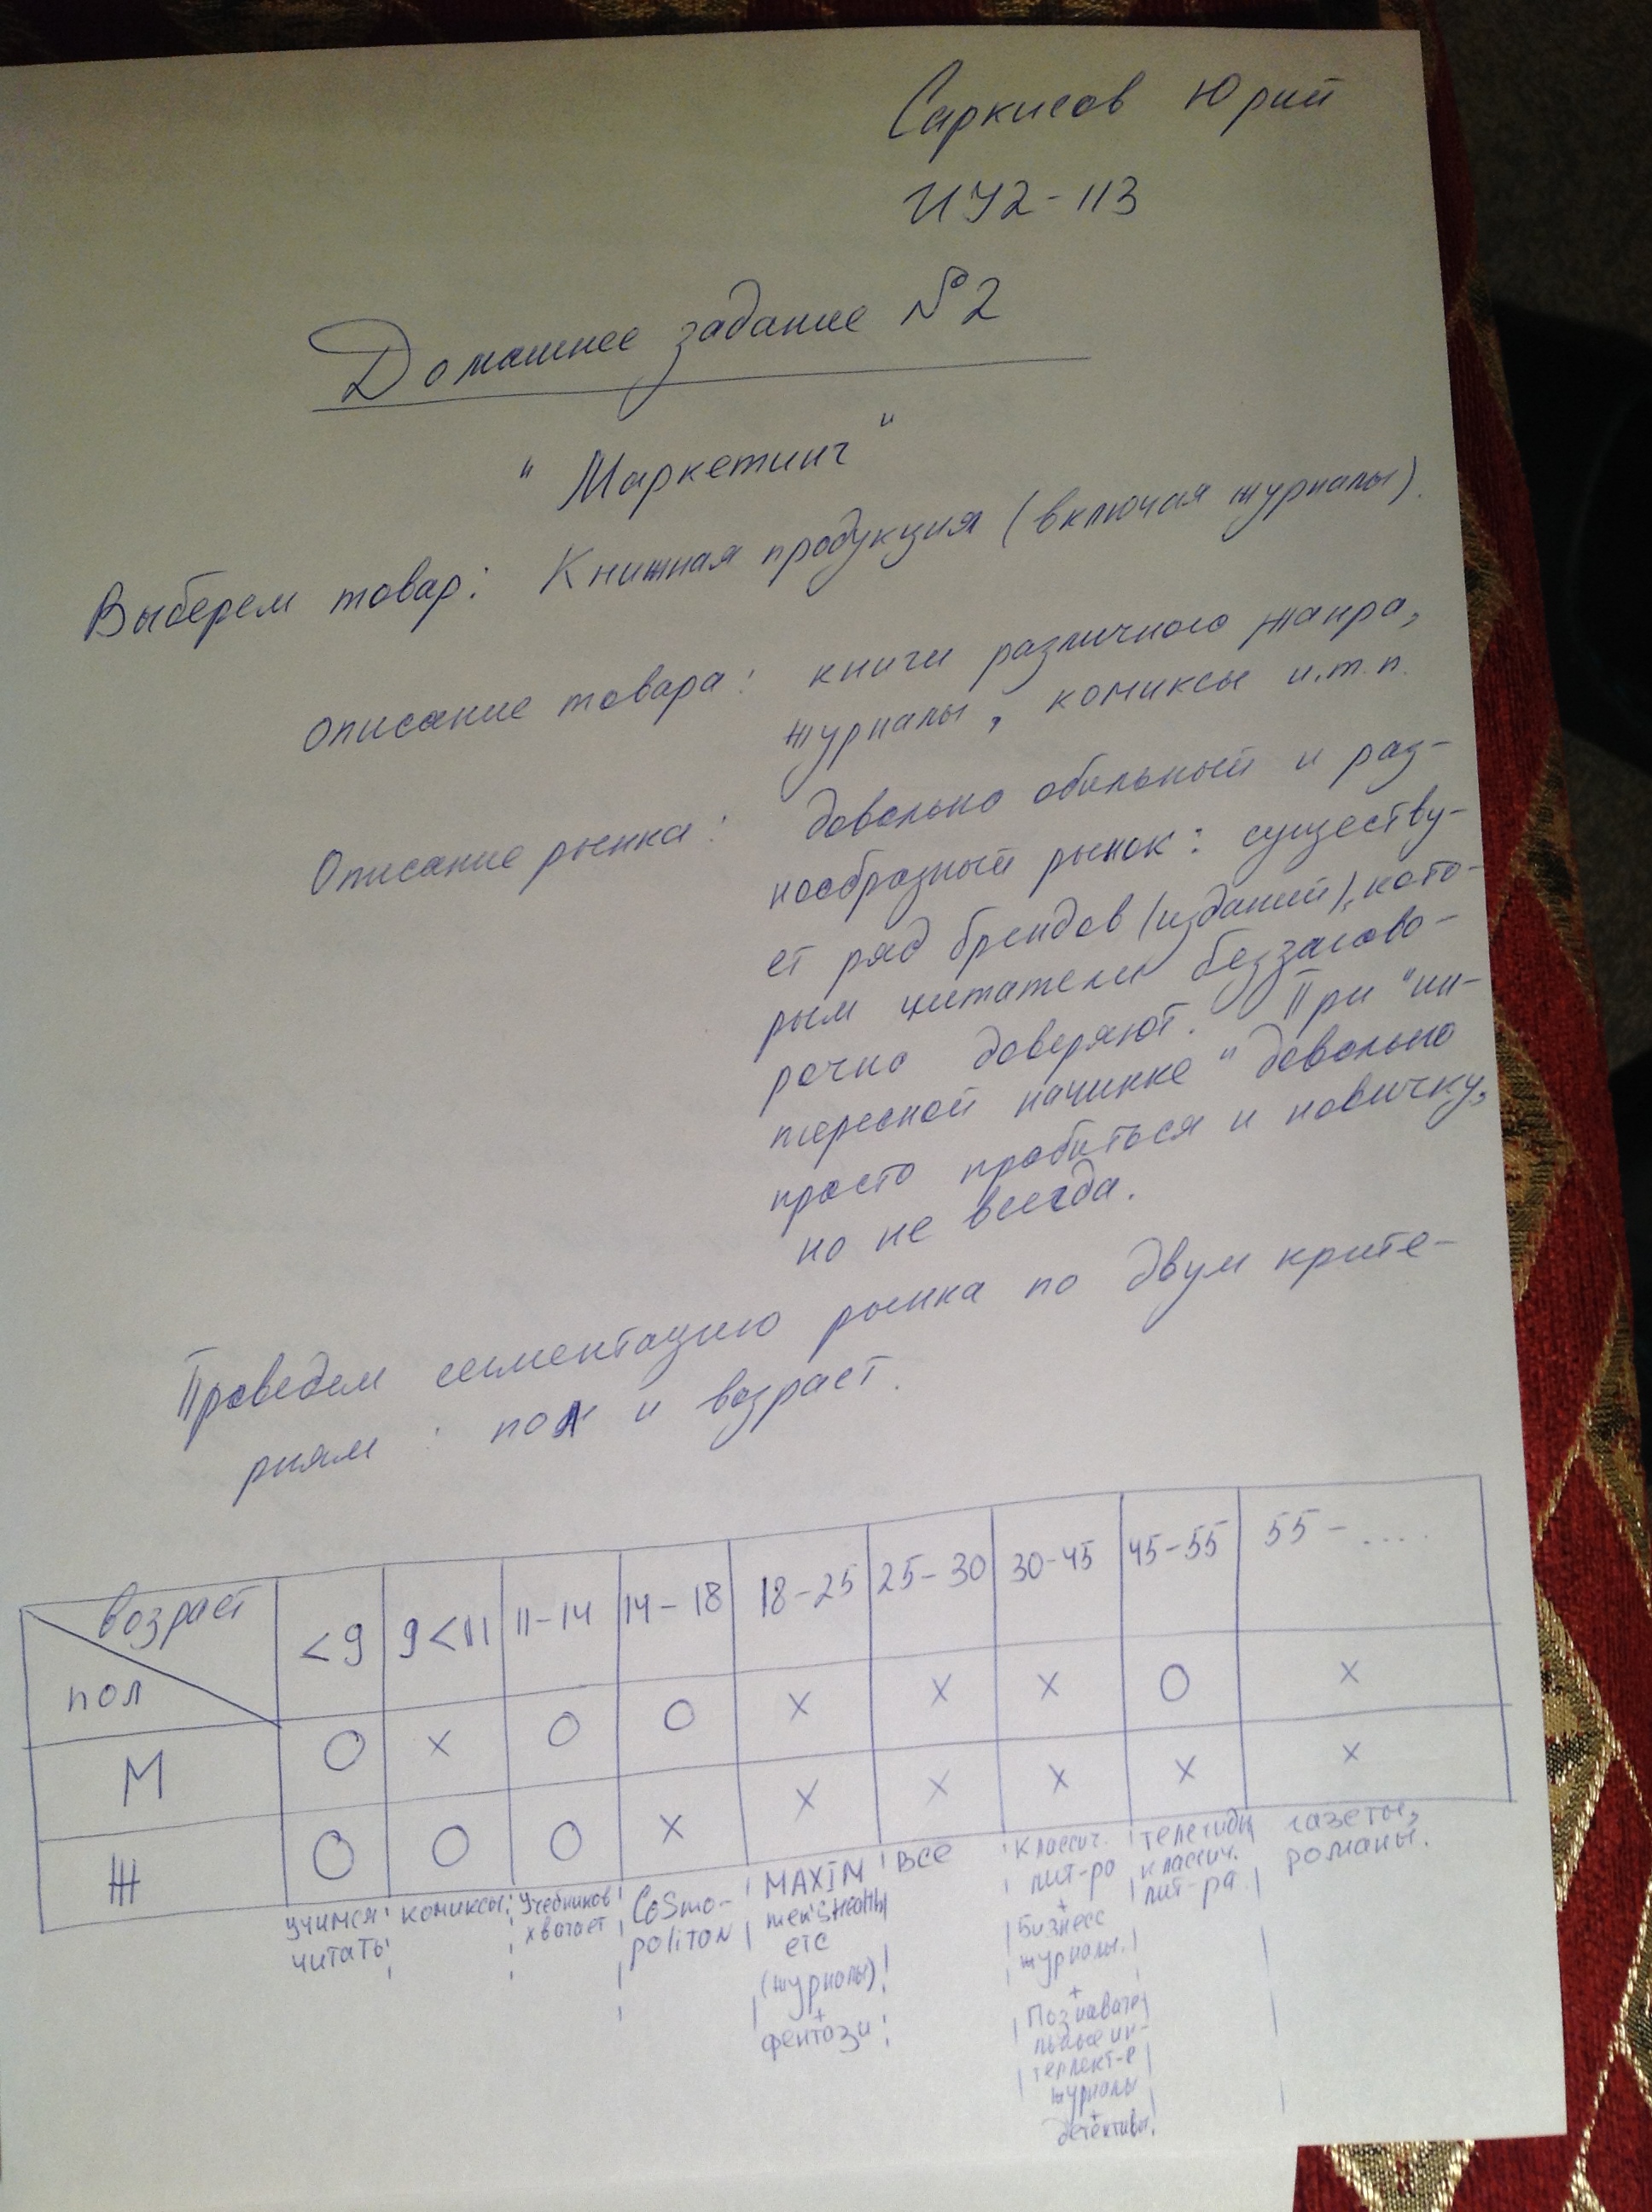 Саркисов Юрий
ИУ2-113
Домашнее задание №2
"Маркетинг"
Выберем товар: Книжная продукция (включая журналы).
Описание товара: книги различного жанра,
журналы, комиксы и.т.п.
Описание рынка: довольно обильный и раз-
нообразный рынок: существу-
ет ряд брендов (изданий), кото-
рым читатели беззагово-
рочно доверяют. При "ин-
тересной начинке" довольно
просто пробиться и новичку,
но не всегда.
Проведем сегментацию рынка по двум крите-
риям: пол и возраст.
возраст <9 9<11 11-14 14-18 18-25 25-30 30-45 45-55 55-....
пол
М О х О О х х х О х
Ж О О О х х х х х х
учимся читать
комиксы
Учебников хватает
Cosmo-
politon
MAXIM
men's Health
etc
(журналы)
+
фентази
все
Классич.
лит-ра
+
Бизнесс
журналы.
+
Познавате
льные ин-
теллект-е
журналы
+
детективы.
телегиды
классич.
лит-ра.
газеты,
романы.